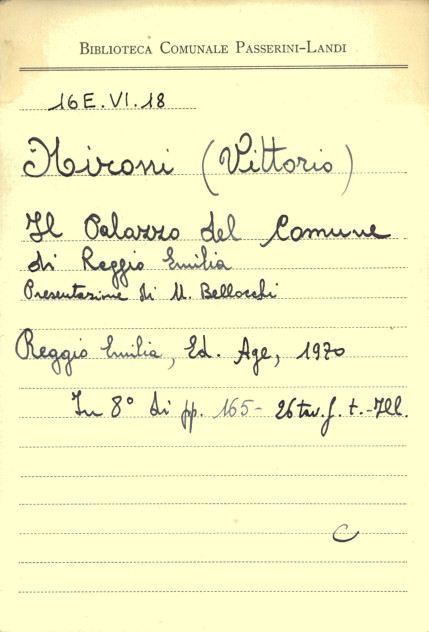 BIBLIOTECA COMUNALE PASSERINI-LANDI
16E.VI.18
Nironi (Vittorio)
Il Palazzo del Comune
di Reggio Emilia
Presentazione di U. Bellocchi
Reggio Emilia, Ed. Age, 1970
In 8° di pp. 165- 26 tav. f. t.-Ill.
C